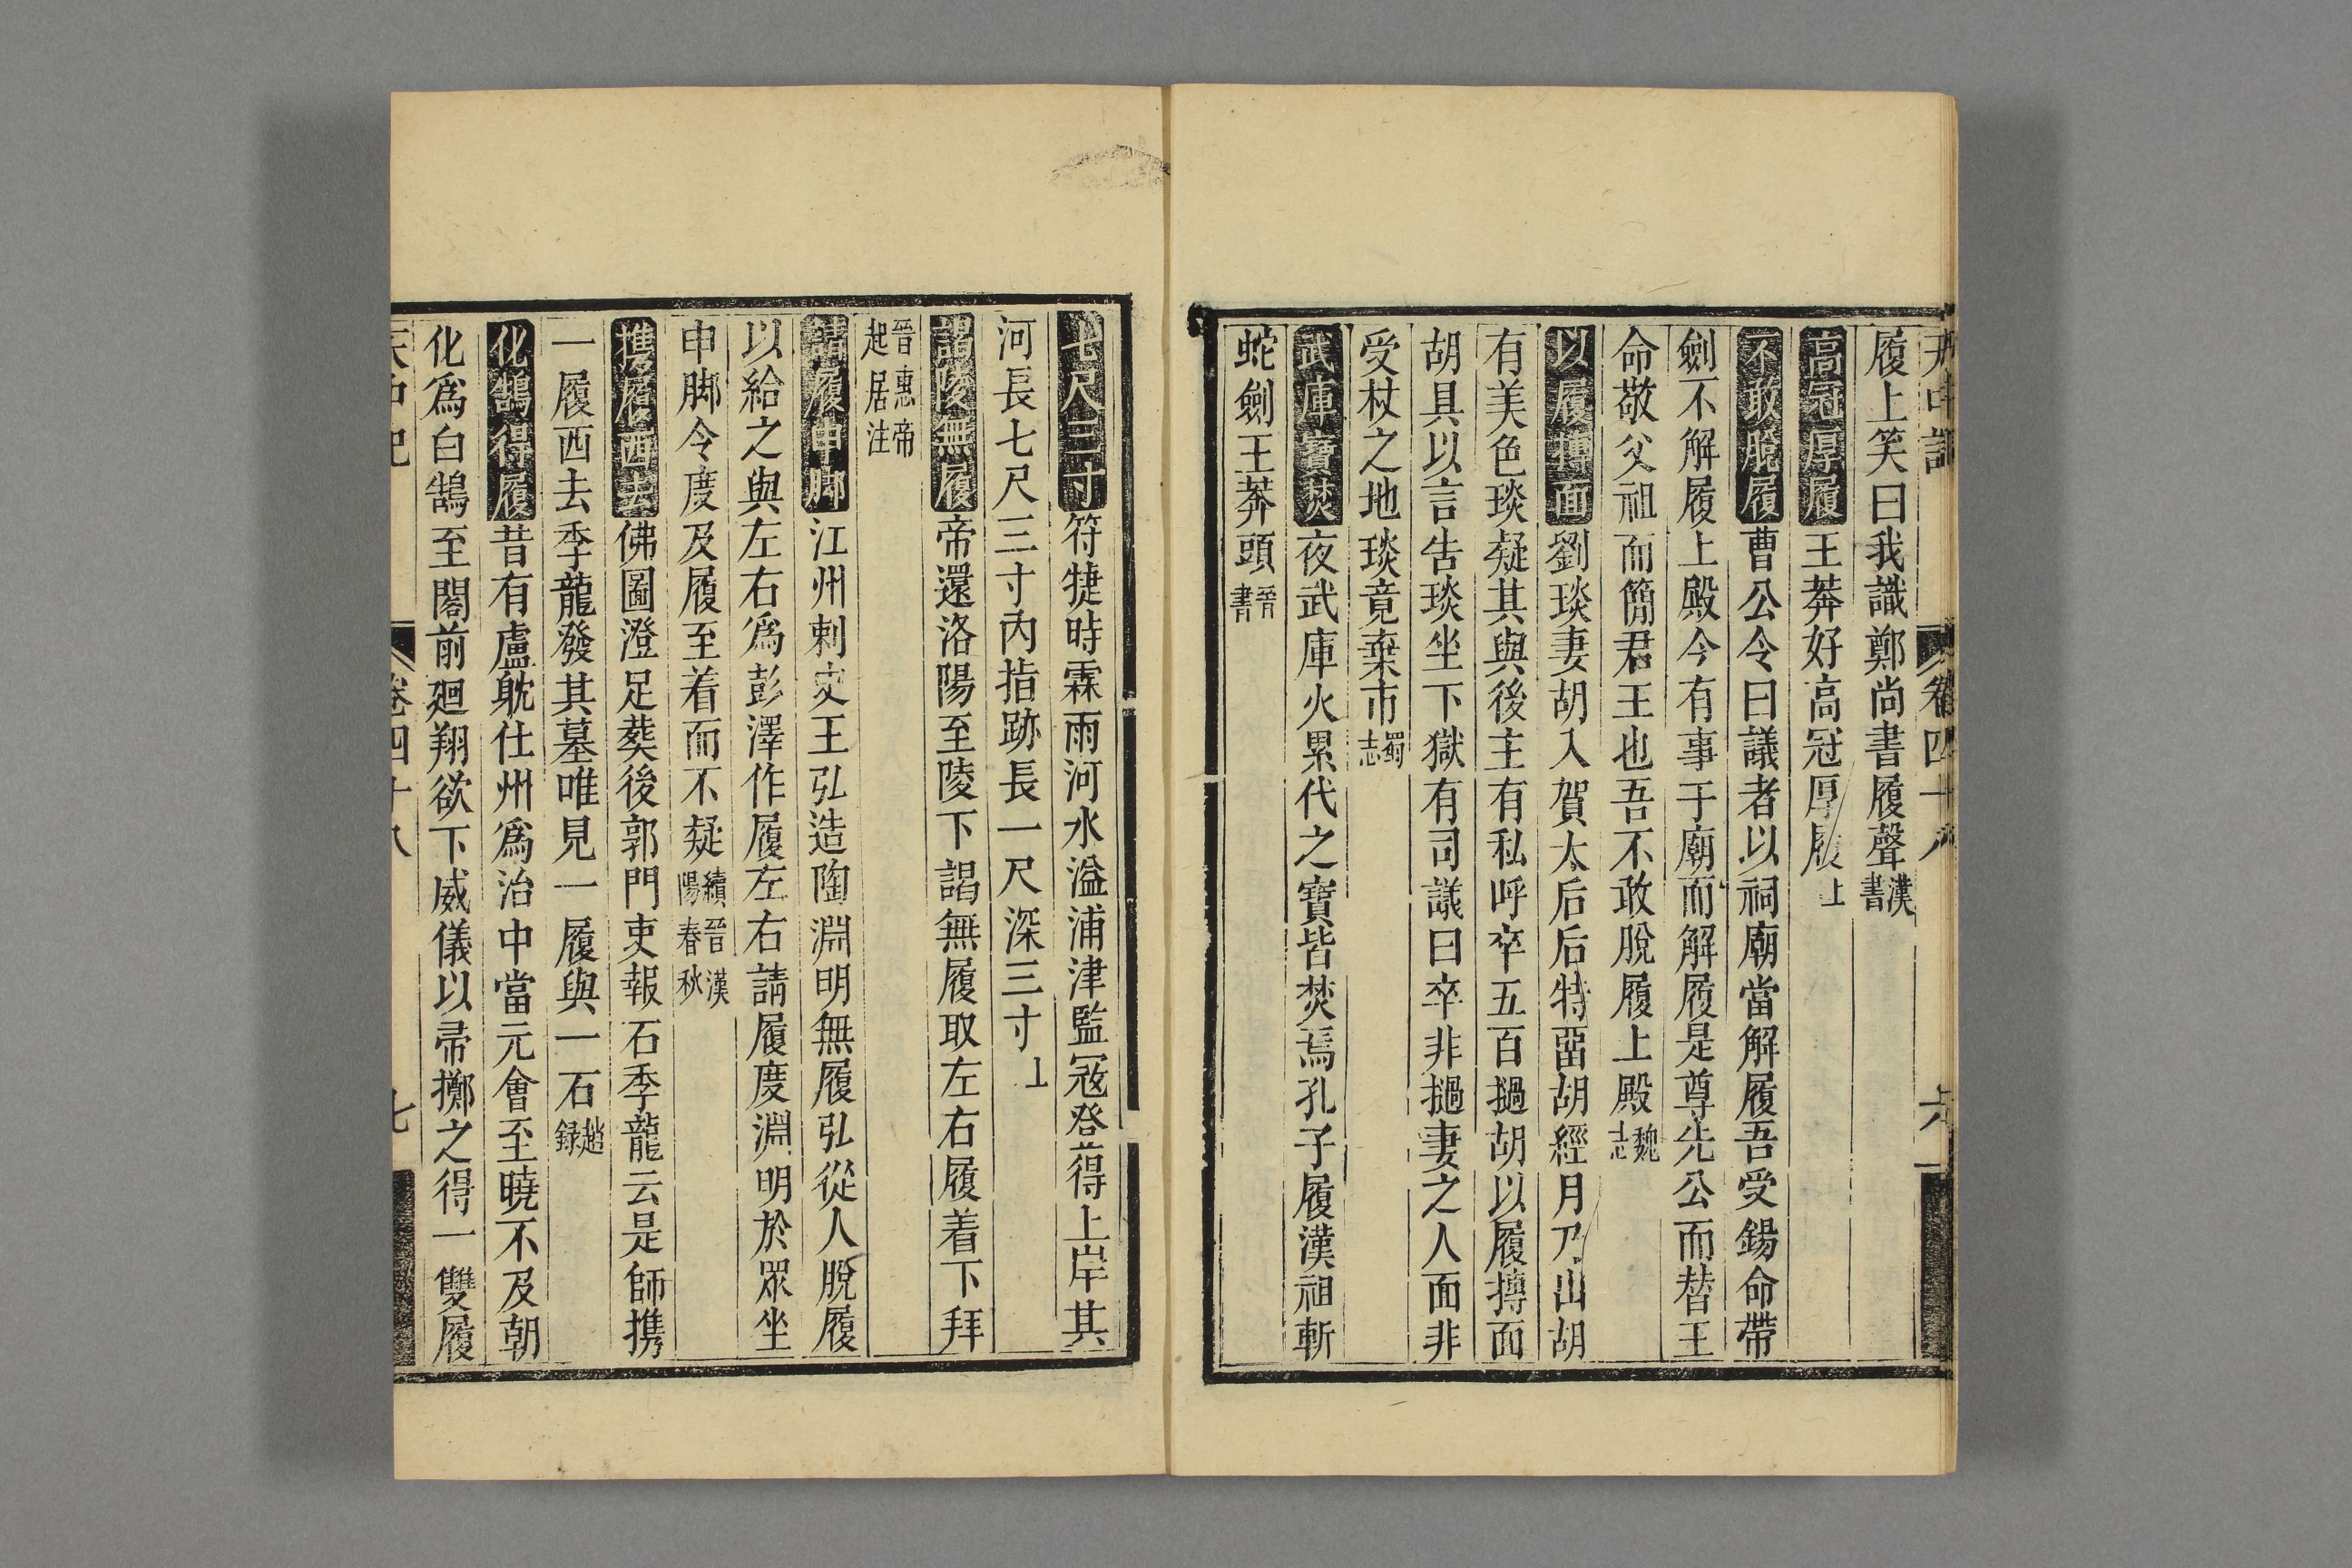 天中記 卷四十八 六
履上笑曰我識鄭尚書履聲漢書
高冠厚履王莽好高冠厚履上
不敢脫履曹公令曰議者以祠廟當解履吾受錫命帶
劍不解履上殿今有事于廟而解履是尊先公而替王
命敬父祖而簡君王也吾不敢脫履上殿魏志
以履摶面劉琰妻胡入賀太后后特留胡經月乃出胡
有美色琰疑其與後主有私呼卒五百撾胡以履摶面
胡具以言告琰坐下獄有司議曰卒非撾妻之人面非
受杖之地琰竟棄市蜀志
武庫寶焚夜武庫火累代之寶皆焚焉孔子履漢祖斬
蛇劍王莽頭晉書
七尺三寸符揵時霖雨河水溢浦津監冦登得上岸其
河長七尺三寸內指跡長一尺深三寸上
謁陵無履帝還洛陽至陵下謁無履取左右履着下拜
晉惠帝起居注
請履申脚江州刺史王弘造陶淵明無履弘從人脫履
以給之與左右為彭澤作履左右請履度淵明於眾坐
申脚令度及履至着而不疑續晉漢陽春秋
携履西去佛圖澄足葬後郭門吏報石季龍云是師携
一履西去季龍發其墓唯見一履與一石趙録
化鵠得履昔有盧躭仕州為治中當元會至曉不及朝
化為白鵠至閣前廻翔欲下威儀以帚擲之得一雙履
天中記 卷四十八 七